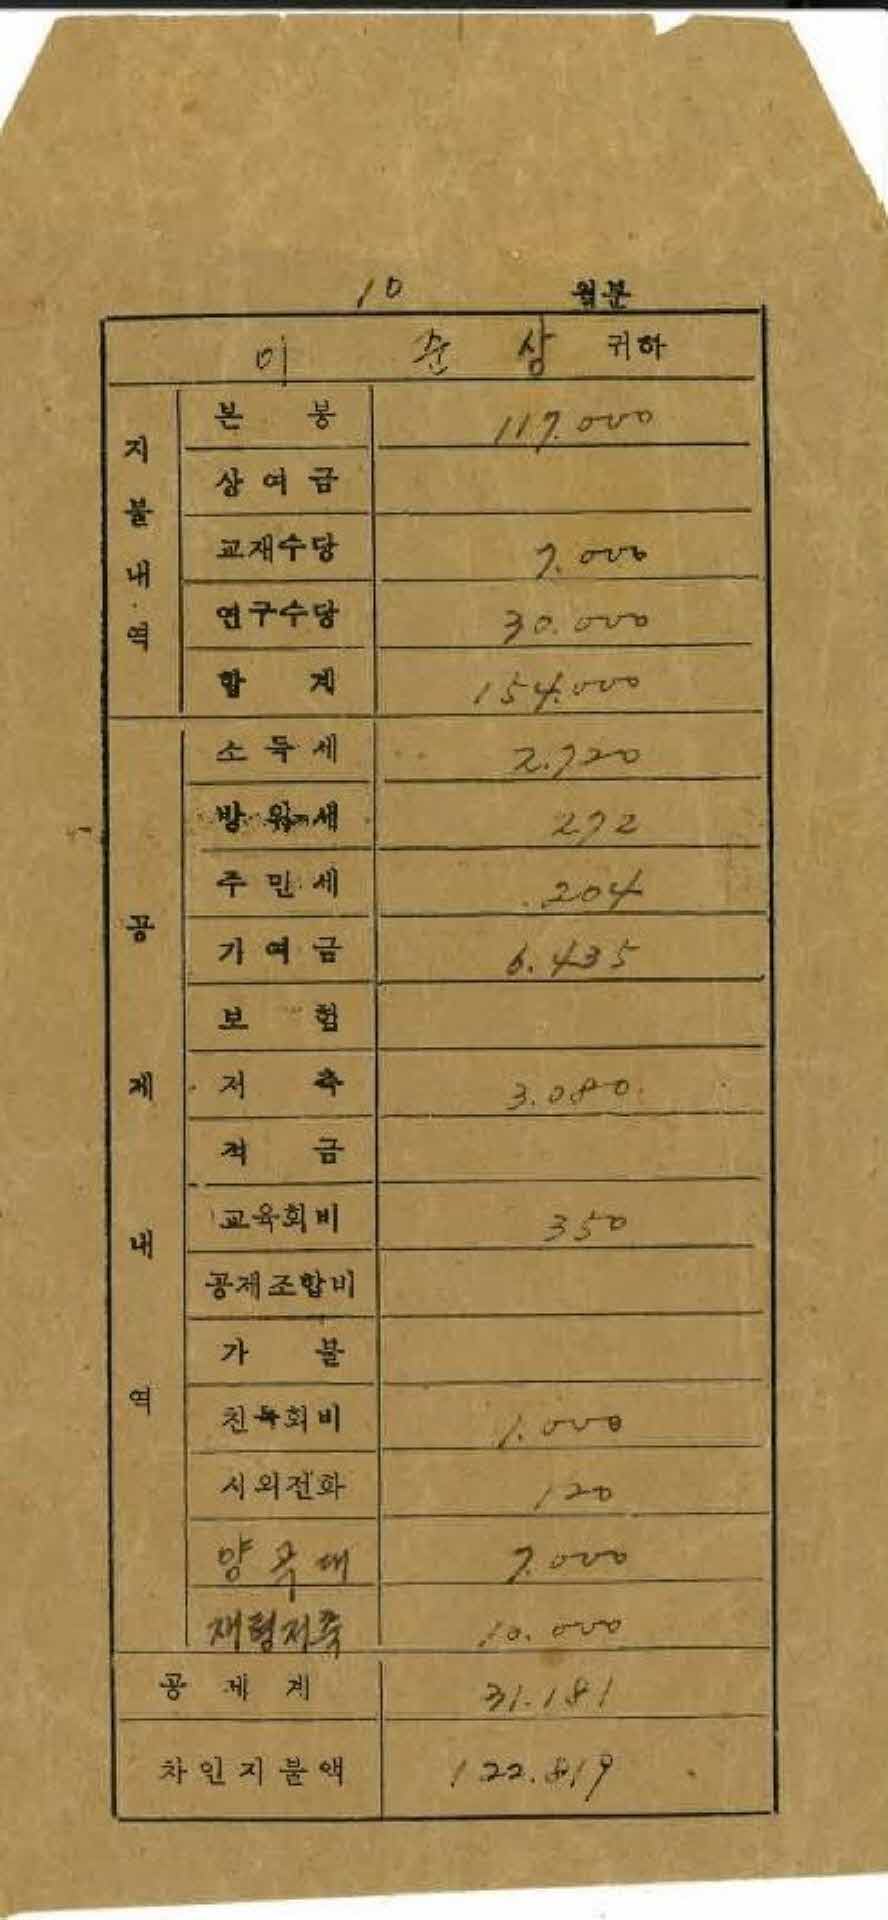 10 월분
이 순 상 귀하
지불내역
본 봉 117.000
상여금
교재수당 7.000
연구수당 30.000
합 계 154.000
공제내역
소득세 2.720
방위세 272
주민세 204
기여금 6.435
보 험
저 축 3.080
적 금
교육회비 350
공제조합비
가 불
친목회비 1.000
시외전화 120
양곡대 7.000
재형저축 10.000
공제계 31.181
차인지불액 122.819